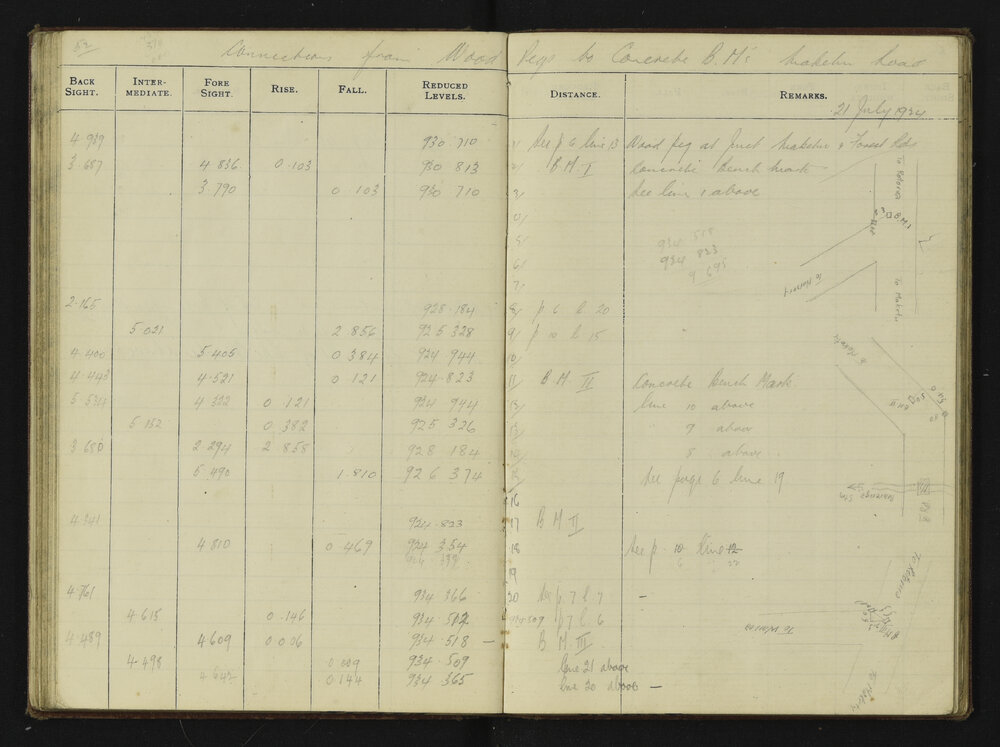 52 Connections from Wood Pegs to Concrete B.M's Maketu Road
BACK SIGHT. INTER-MEDIATE. FORE SIGHT. RISE. FALL. REDUCED LEVELS. DISTANCE. REMARKS.
21 July 1934
4·939 930·710 1/ See p 6 line 13 Wood peg at Junct Maketu & Forest Rds
3·687 4·836 0·103 930 813 2/ B.M. I Concrete Bench mark
3·790 0·103 930 710 3/ See line 1 above
5/
934 518
6/ 934 823
9 695
7/
2·165 928·184 8/ p 6 l. 20
5 021 2·856 925 328 9/ p 10 l 15
4·400 5·405 0·384 924 944 10/
4·443 4·521 0·121 924·823 11/ B.M. II Concrete Bench Mark
4 322 0·121 924 944 12/ line 10 above
5·152 0·382 925 326 13/ 9 above
3 680 2·294 2·858 928 184 14/ 8 above
5·490 1·810 926 374 See page 6 line 19
16
4·341 924·823 17 B M II
4 810 0·469 924 354 18 See p. 10 line 12
19
4·761 934 366 20 See p. 7 l. 7 –
4·615 0·146 934 512 p 7 l. 6
4·489 4·609 0·006 934·518 – B M. III
4·498 0·009 934·509 line 21 above
4·642 0·144 934 365 line 20 above –
To Rotorua
B.M. I
To Maketu
B M II
To Rotorua